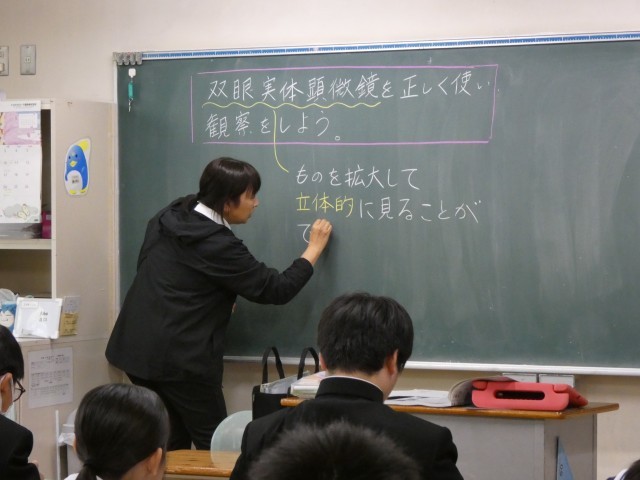 双眼実体顕微鏡を正しく使い
観察をしよう。
ものを拡大して
立体的に見ることが
て